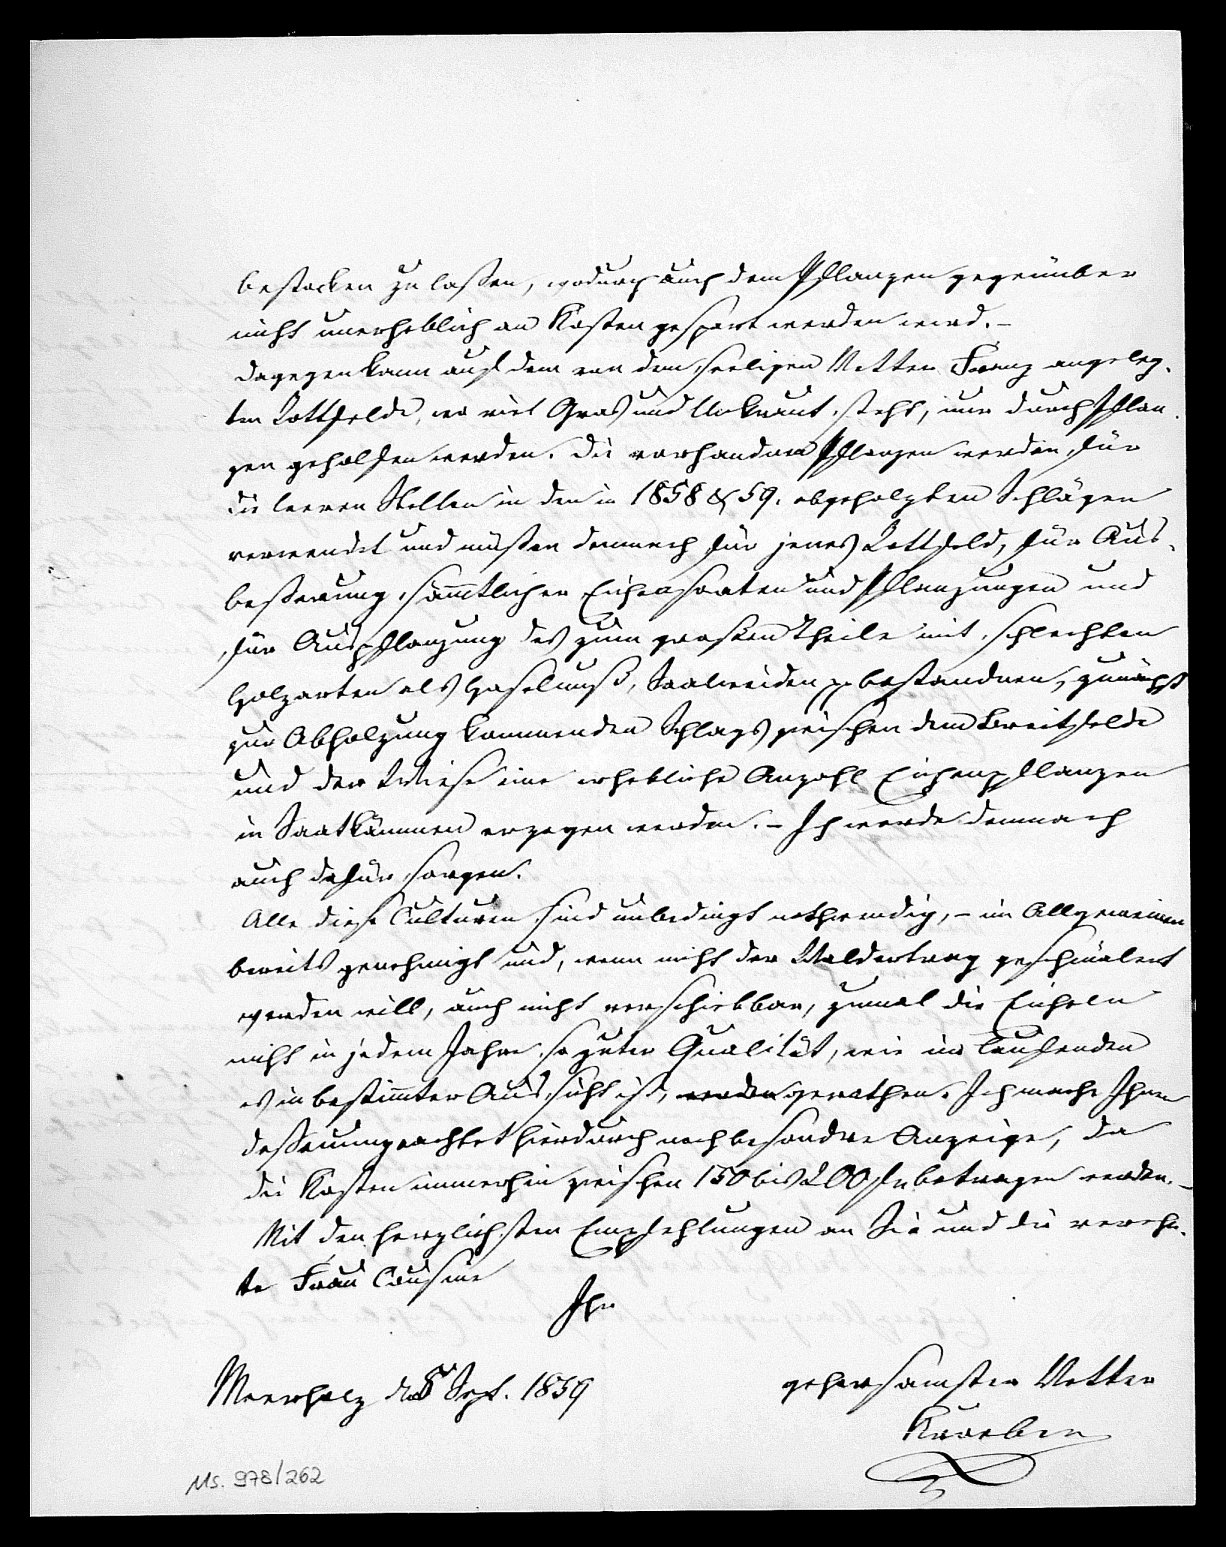 bestocken zu laßen, wodurch auch dem Pflanzen gegenüber
nicht unerheblich an Kosten gespart werden wird. –
Dagegen kann auf dem von dem seeligen Vetter Franz angeleg-
ten Rottfelde, wo viel Gras und Unkraut steht, nur durch Pflan-
zen geholfen werden. Die vorhandnen Pflanzen werden für
die leeren Stellen in den in 1858 & 59. abgeholzten Schlägen
verwendet und müßen demnach für jenes Rottfeld, für Aus-
beßerung sämmtlicher Eichensaaten und Pflanzungen und
für Auspflanzung des zum großen Theile mit schlechten
Holzarten als Haselnuß, Saalweiden pp bestandnen, zunächst
zur Abholzung kommenden Schlags zwischen dem Breitfelde
und der Wiese eine erhebliche Anzahl Eichenpflanzen
in Saatkämmen erzogen werden. – Ich werde demnach
auch dafür sorgen.
Alle diese Culturen sind unbedingt nothwendig, – im Allgemeinen
bereits genehmigt und, wenn nicht der Waldertrag geschmälert
werden will, auch nicht verschiebbar, zumal die Eicheln
nicht in jedem Jahre so guter Qualität, wie im laufenden
es in bestimmter Aussicht ist, gerathen. Ich mache Ihnen
deßenungeachtet hierdurch noch besondre Anzeige, da
die Kosten immerhin zwischen 150 bis 200 fl betragen werden. –
Mit den herzlichsten Empfehlungen an Sie und die verehr-
te Frau Cousine
Ihr
Meerholz d 8 Sept. 1859
gehorsamster Vetter
Ms. 978/262